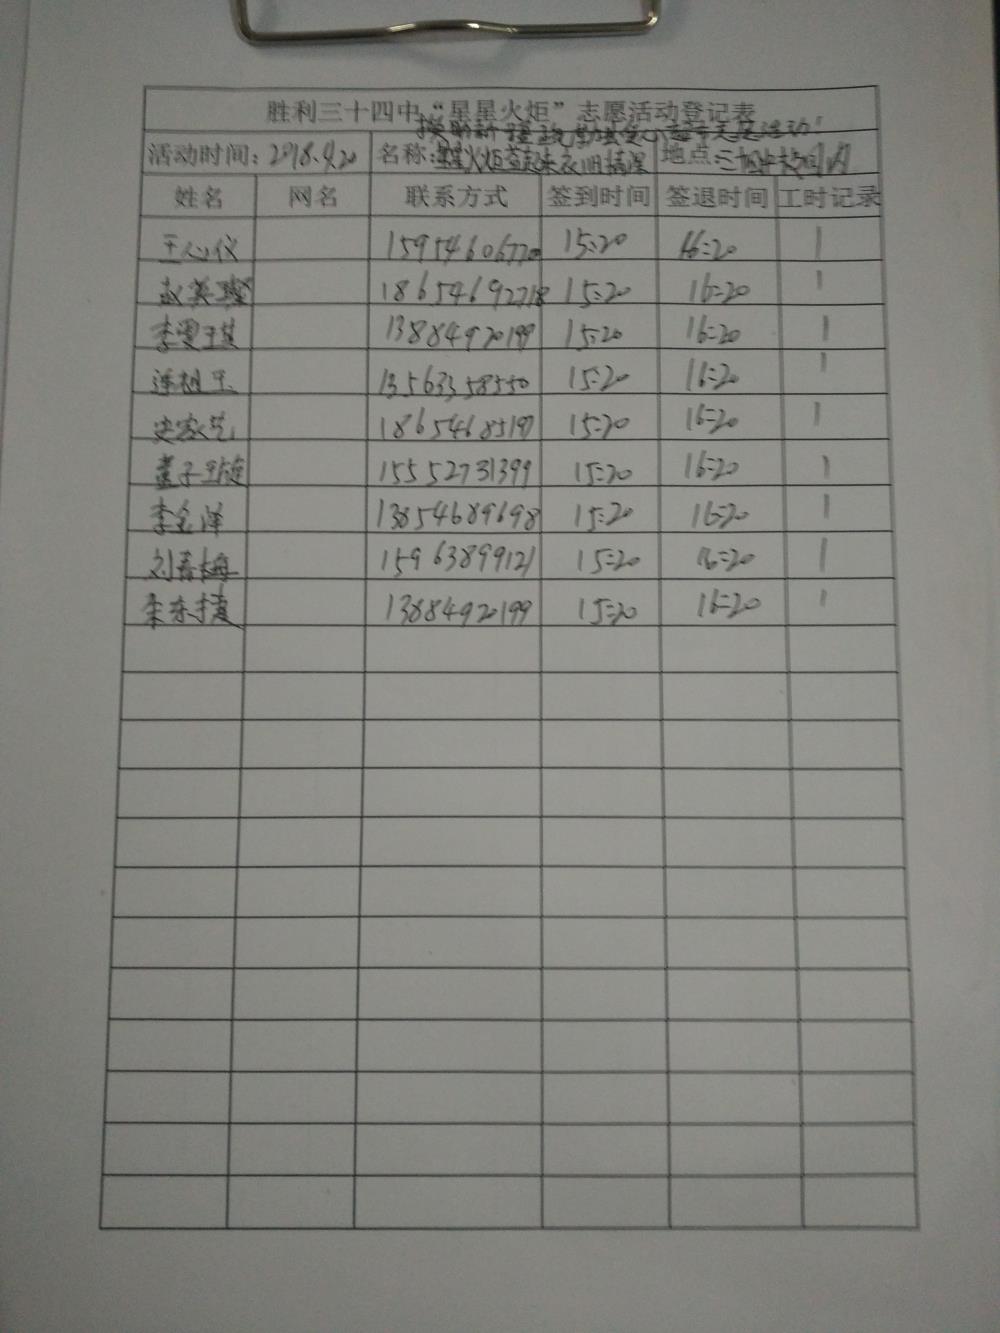 胜利三十四中“星星火炬”志愿活动登记表
活动时间：2018.4.20 名称： 地点：三十四中校园内
姓名 网名 联系方式 签到时间 签退时间 工时记录
王心仪 15954606770 15:20 16:20 1
赵英 18654692718 15:20 16:20 1
李雯琪 13884920199 15:20 16:20 1
连祖玉 13563358550 15:20 16:20 1
史家艺 18654685197 15:20 16:20 1
孟子璇 15552731399 15:20 16:20 1
李金泽 13854689698 15:20 16:20 1
刘春梅 15963899121 15:20 16:20 1
李东捷 13884920199 15:20 16:20 1